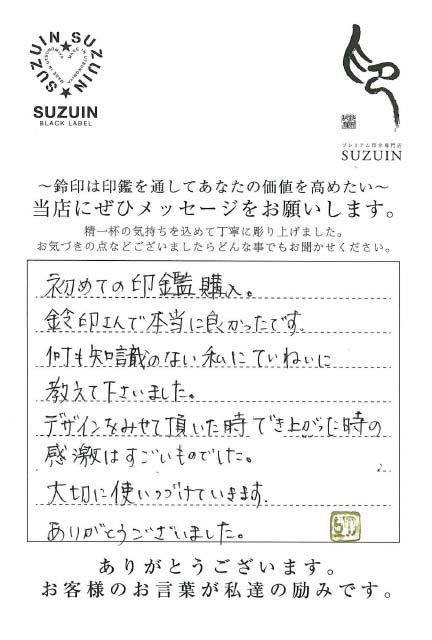 SUZUIN SUZUIN
SUZUIN
BLACK LABEL
プレミアム印章専門店
SUZUIN
〜鈴印は印鑑を通してあなたの価値を高めたい〜
当店にぜひメッセージをお願いします。
精一杯の気持ちを込めて丁寧に彫り上げました。
お気づきの点などございましたらどんな事でもお聞かせください。
初めての印鑑購入。
鈴印さんで本当に良かったです。
何も知識のない私にていねいに
教えて下さいました。
デザインをみせて頂いた時でき上がった時の
感激はすごいものでした。
大切に使いつづけていきます.
ありがとうございました。
ありがとうございます。
お客様のお言葉が私達の励みです。